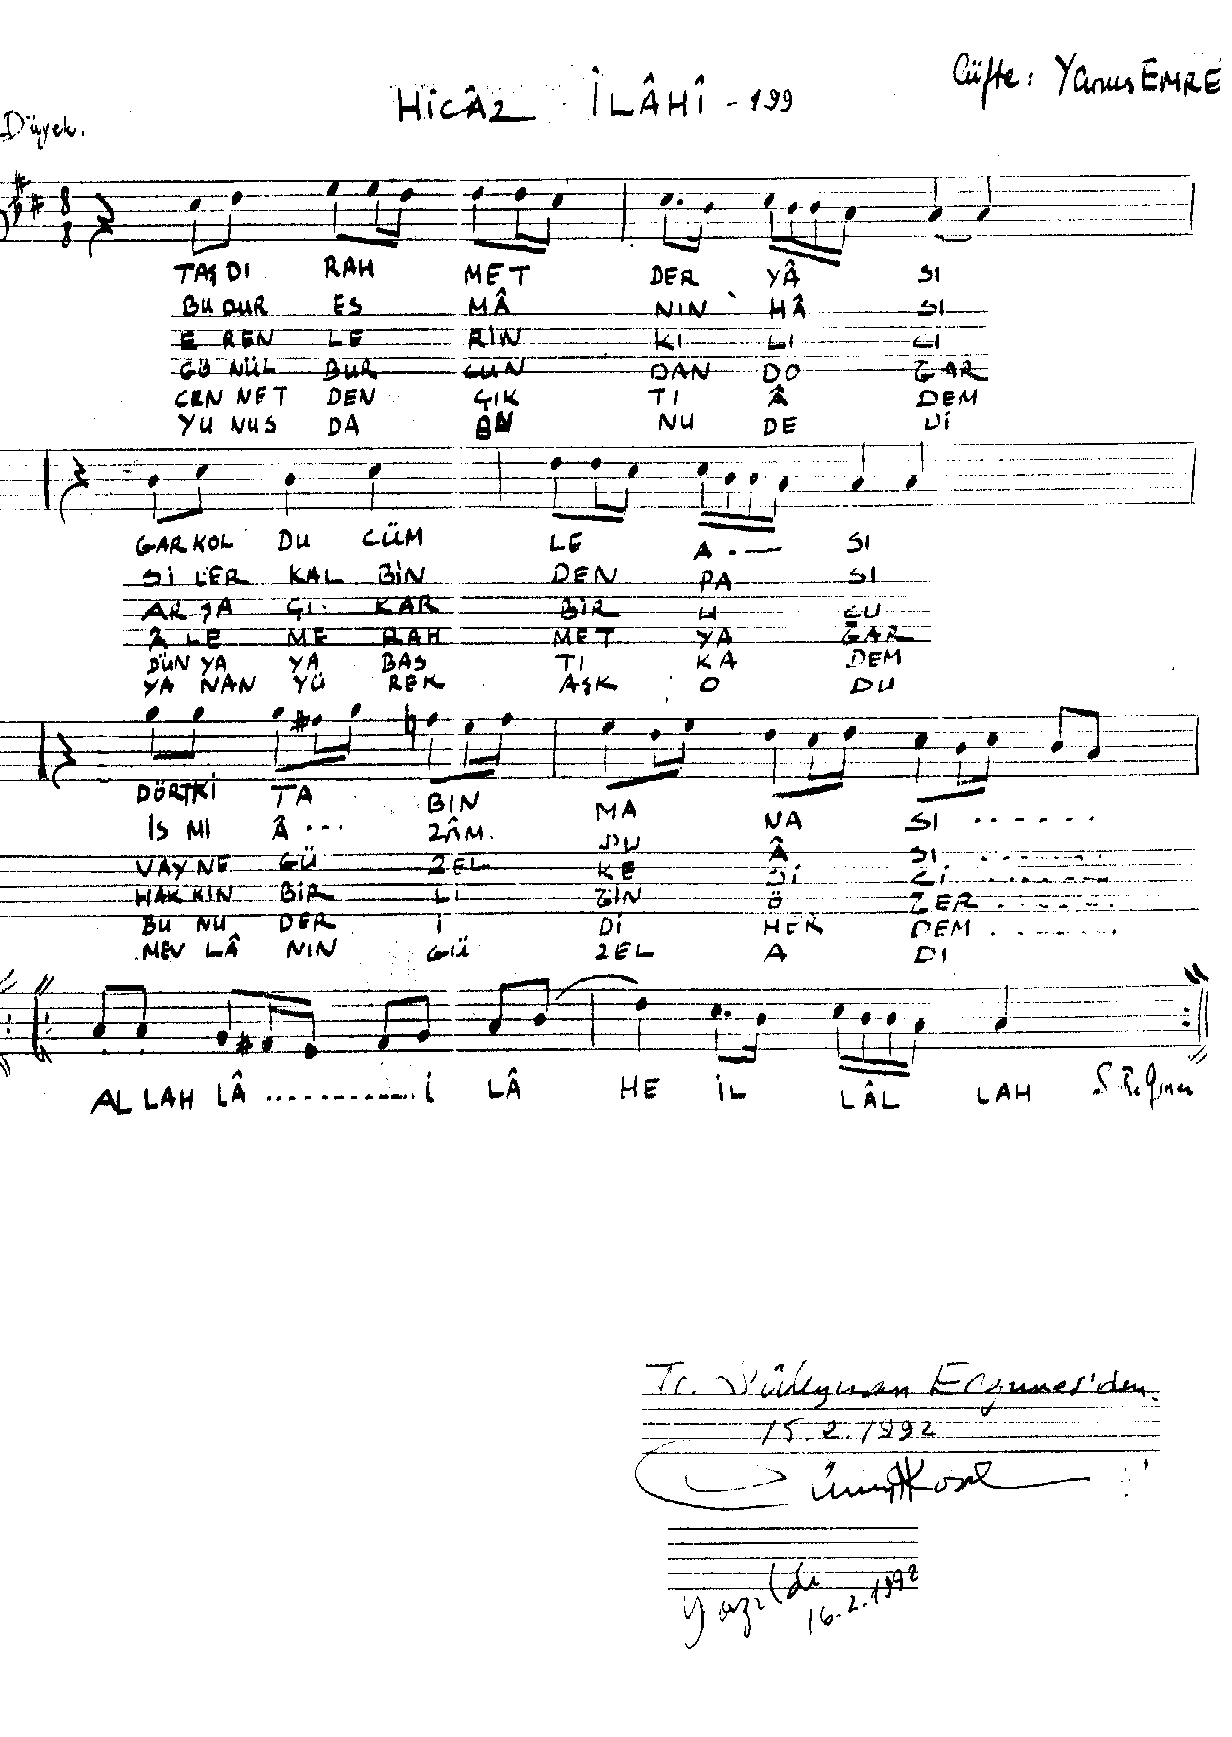 Güfte: Yunus EMRE
HİCÂZ İLÂHÎ - 199
Düyek.
8
8
TAŞDI RAH MET DER YÂ SI
BU DUR ES MÂ NIN HÂ SI
E REN LE RİN KI LI CI
GÖ NÜL BUR CUN DAN DO ĞAR
CEN NET DEN ÇIK TI Â DEM
YU NUS DA NU DE Dİ
GARKOL DU CÜM LE A . — SI
Sİ LER KAL BİN DEN PA SI
AR ŞA ÇI KAR BİR U CU
LE ME RAH MET YA ĞAR
DÜN YA YA BAS TI KA DEM
YA NAN YÜ REK AŞK O DU
DÖRTKİ TA BIN MA NA SI ......
İS MI Â ... ZÂM. DU Â SI ......
VAY NE GÜ ZEL KE Sİ Cİ ......
HAK KIN BİR Lİ ĞİN Ö ĞER ......
BU NU DER İ Dİ HER DEM ......
MEV LÂ NIN GÜ ZEL A DI
ALLAH LÂ ............. İ LÂ HE İL LÂL LAH
Süleyman Erguner'den
15.2.1992
Yazıldı
16.2.1992